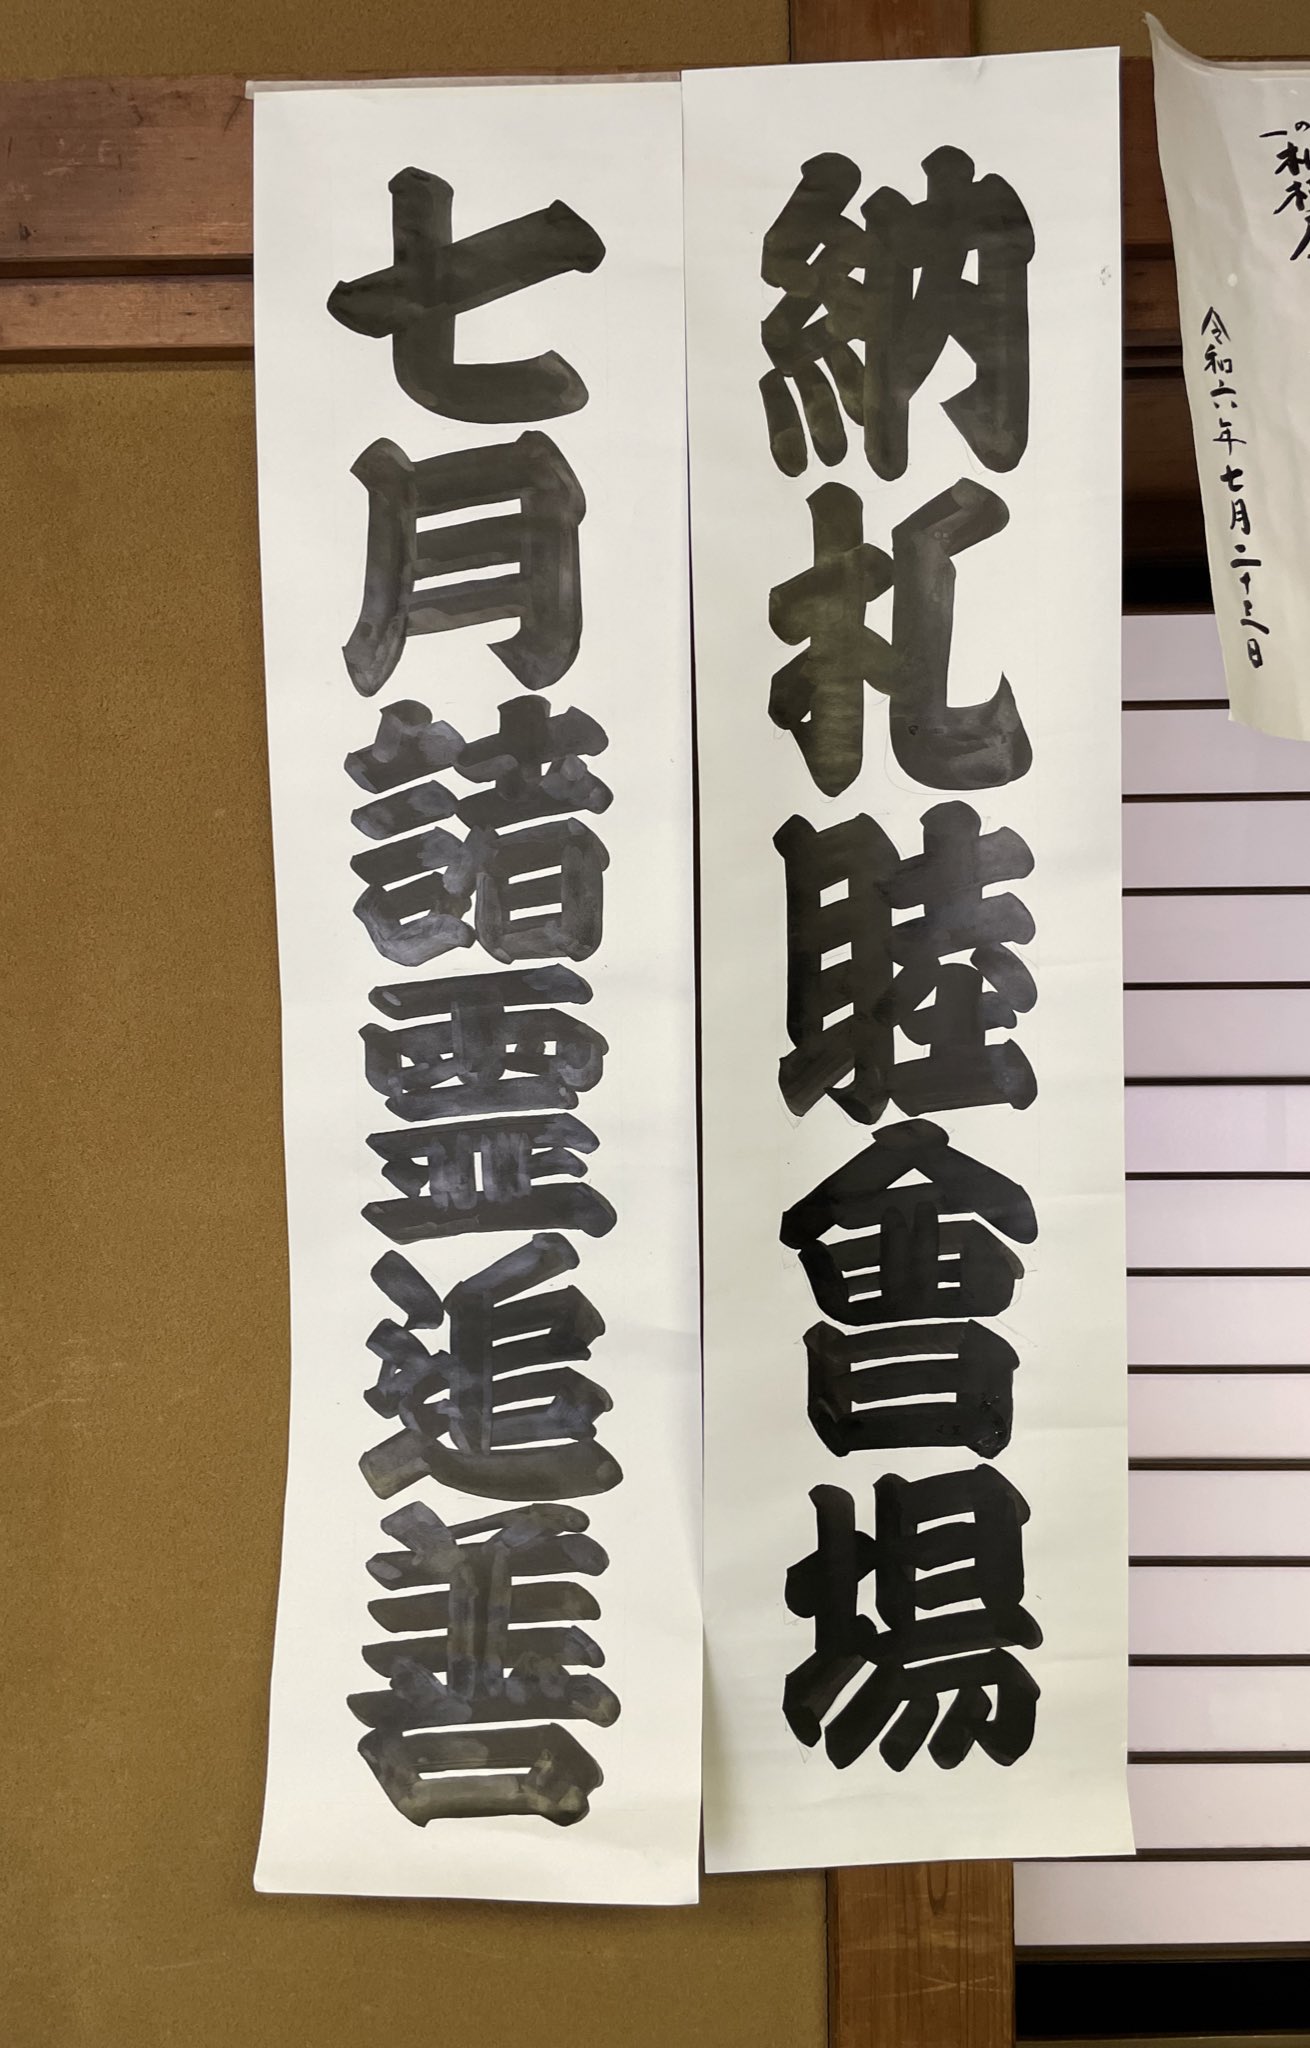 令和六年七月二十三日
納札睦會場
七月諸霊追善